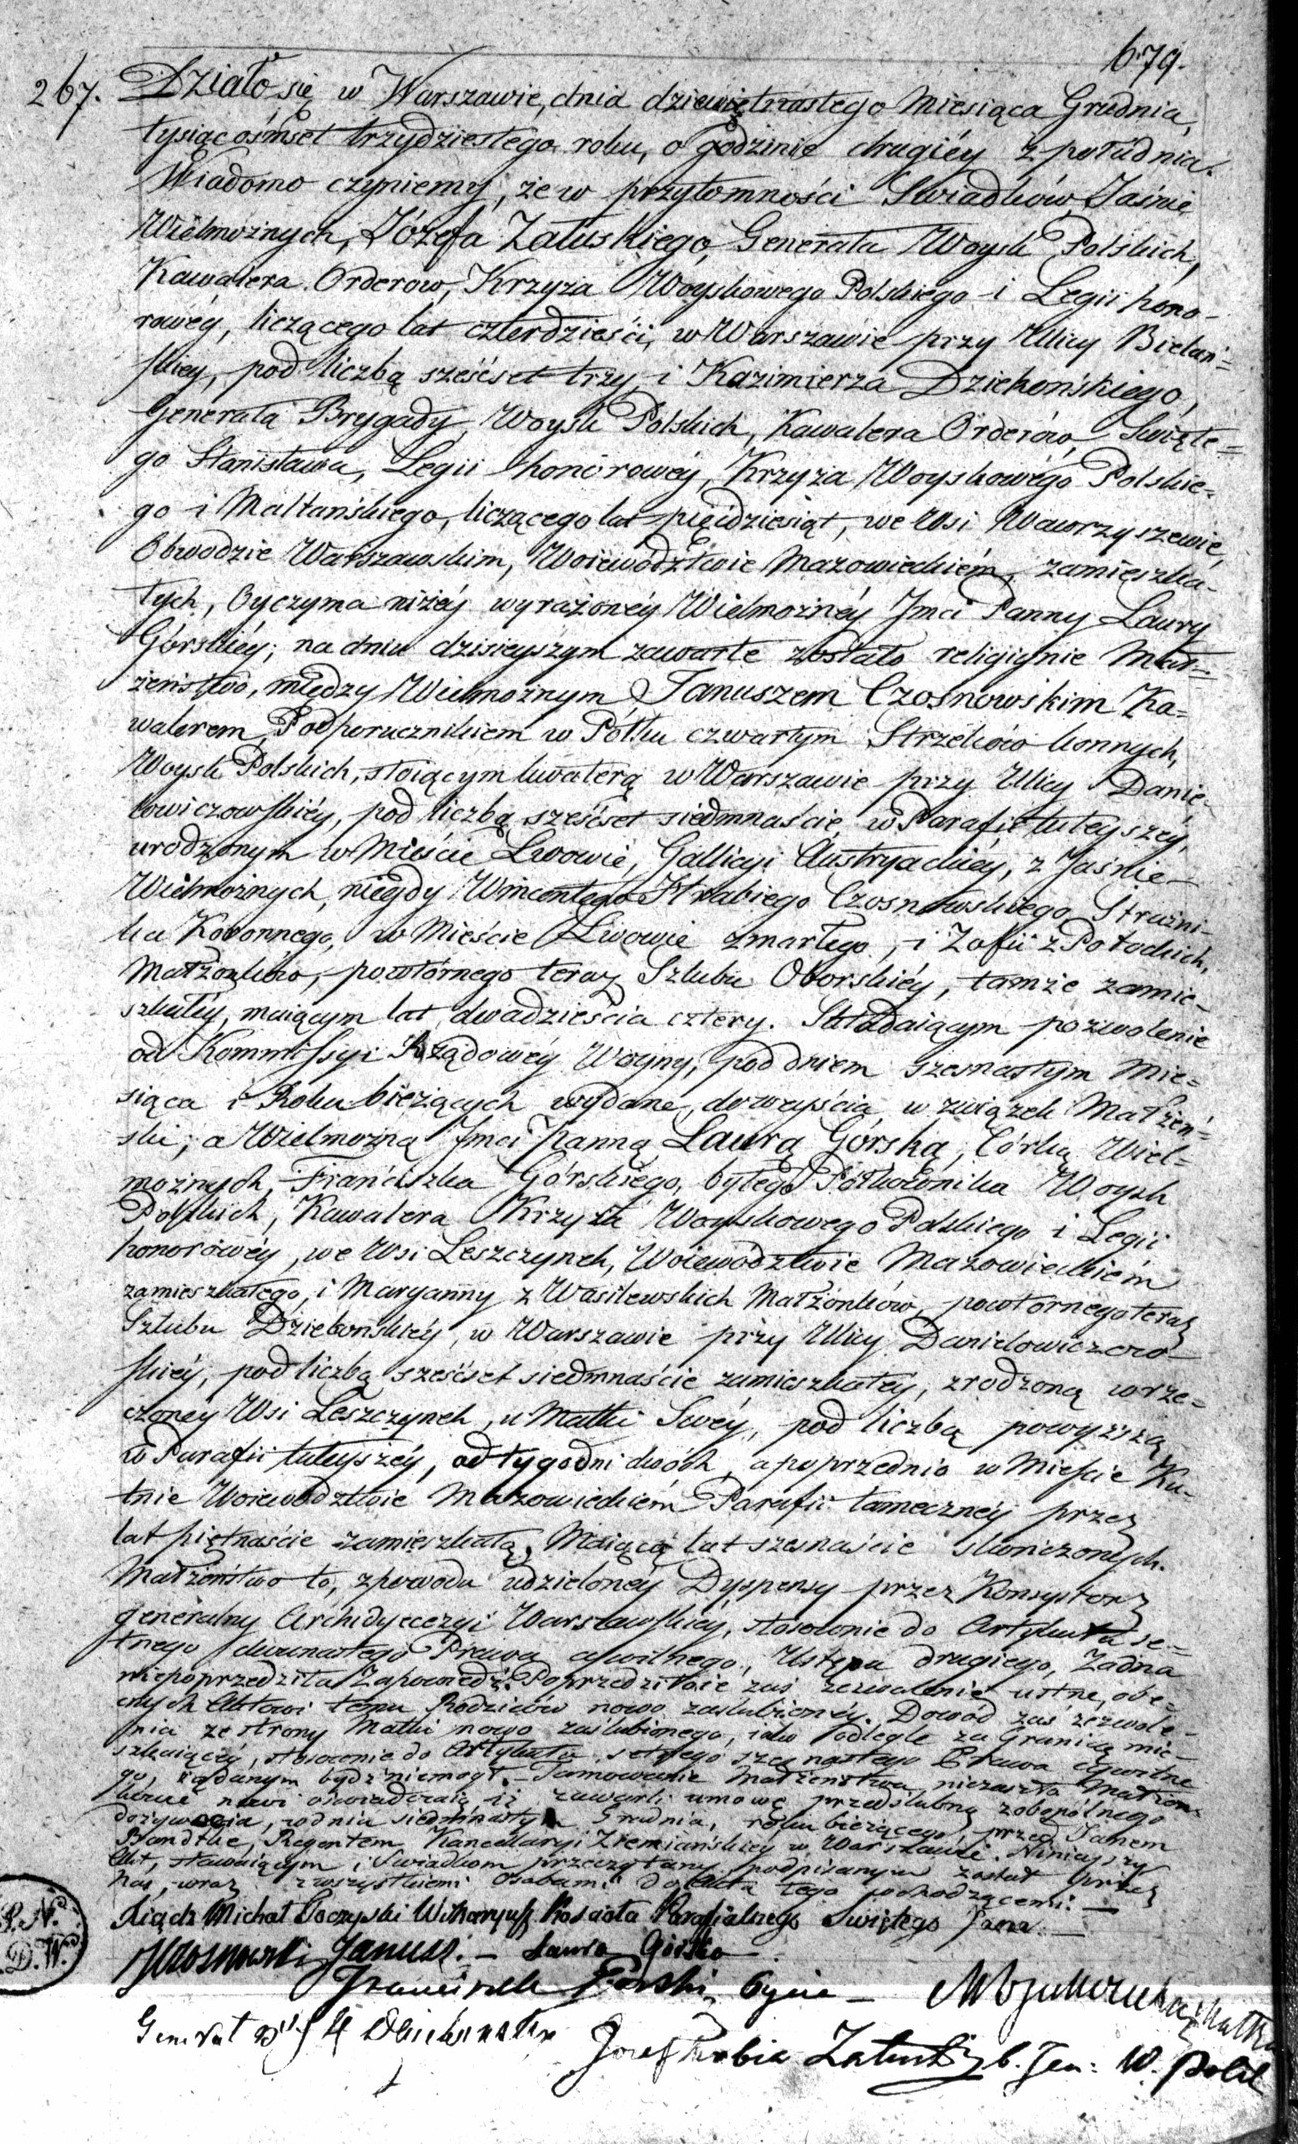 679.
267. Działo się w Warszawie, dnia dziewiętnastego Miesiąca Grudnia,
tysiąc ośmset trzydziestego roku, o godzinie drugiéy z południa.
Wiadomo czyniemy, że w przytomności Swiadków Jaśnie
Wielmożnych, Józefa Załuskiego, Generała Woysk Polskich,
Kawalera Orderow, Krzyża Woyskowego Polskiego i Legii hono-
rowéy, liczącego lat czterdzieści, w Warszawie przy Ulicy Bielań=
skiey, pod liczbą sześćset trzy, i Kazimierza Dziekońskiego,
Generała Brygady Woysk Polskich, Kawalera Orderów, Swięte=
go Stanisława, Legii honorowéy, Krzyża Woyskowégo Polskie-
go i Maltańskiego, liczącego lat pięćdziesiąt, we Wsi Wawrzyszewie,
Obwodzie Warszawskim, Woiewództwie Mazowieckiém, zamieszka-
łych, Oyczyma niżéy wyrażonéy Wielmożnéy Jmci Panny Laury
Górskiéy; na dniu dzisieyszym zawarte zostało religiynie Mał=
żeństwo, między Wielmożnym Januszem Czosnowskim Ka=
walerem, Podporucznikiem w Półku czwartym Strzelców konnych,
Woysk Polskich, stoiącym kwaterą w Warszawie przy Ulicy Danie-
łowiczowskiéy, pod liczbą sześćset siedmnaście w Parafii tuteyszéy,
urodzonym w Mieście Lwowie, Gallicyi Austryackiéy, z Jaśnie
Wielmożnych, niegdy Wincentego Hrabiego Czosnowskiego Strażni-
ka Koronnego, w Mieście Lwowie zmarłego, i Zofii z Potockich,
Małżonków, powtórnego teraz Szlubu Oborskiéy, tamże zamie-
szkałéy, maiącym lat dwadzieścia cztery. Składaiącym pozwolenie
od Kommissyi Rządowéy Woyny, pod dniem szesnastym Mie=
siąca i Roku bieżących wydane, do weyścia w związek Małżeń=
ski; a Wielmożną Jmci Panną Laurą Górską, Córką Wiel=
możnych, Franciszka Górskiego, byłego Półkownika Woysk
Polskich, Kawalera Krzyża Woyskowego Polskiego i Legii
honorowéy, we Wsi Leszczynek, Woiewództwie Mazowieckiém
zamieszkałego, i Maryanny z Wasilewskich Małżonków, powtornego teraz
Szlubu Dziekońskiéy, w Warszawie przy Ulicy Daniełowiczow-
skiéy, pod liczbą sześćset siedmnaście zamieszkałéy, zrodzoną w rze-
czonéy Wsi Leszczynek, u Matki Swéy, pod liczbą powyższą
w Parafii tuteyszéy, od tygodni dwóch, a poprzednio w Mieście Ku-
tnie Woiewództwie Mazowieckiém Parafii tameczneý przez
lat piętnaście zamieszkałą, Maiącą lat szesnaście skończonych.
Małżeństwo to, z powodu udzielonéy Dyspensy przez Konsystorz
Generalny Archidyecezyi Warszawskiéy, stosownie do Artykułu se=
tnego dwunastego Prawa cywilnego, Ustępu drugiego, Żadna
niepoprzedziła Zapowiedź. Poprzedziło zaś zezwolenie ustne, obe=
cnych Aktowi temu Rodziców nowo zaślubionéy. Dowód zaś zezwole-
nia ze strony Matki nowo zaślubionego, iako podległe za Granicą mie-
szkaiącéy, stosownie do Artykułu setnego szesnastego Prawa cywilne-
go, żądanym bydź niemógł. Tamowanie Małżeństwa niezaszło. Małżon-
kowie nowi oświadczaią iż zawarli umowę przedślubną zobopólnego
dożywocia, w dniu siedmnastym Grudnia, roku bieżącego, przed Janem
Bandtke, Regentem Kancellaryi Ziemiańskiéy w Warszawie. Ninieyszy
Akt, stawaiącym i Swiadkom przeczytany podpisanym został przez
Nas, wraz z wszystkiemi osobami do Aktu tego wchodzącemi.
Xiądz Michał Wikaryusz Kościoła Parafialnego Swiętego Jana
Czosnowski Janusz. Laura Górska
Franciszek Górski Oyciec
Matka
Generał Dziekoński
Józef Hrabia Załuski b. Jen: W. Polsk
P.N.
D.W.